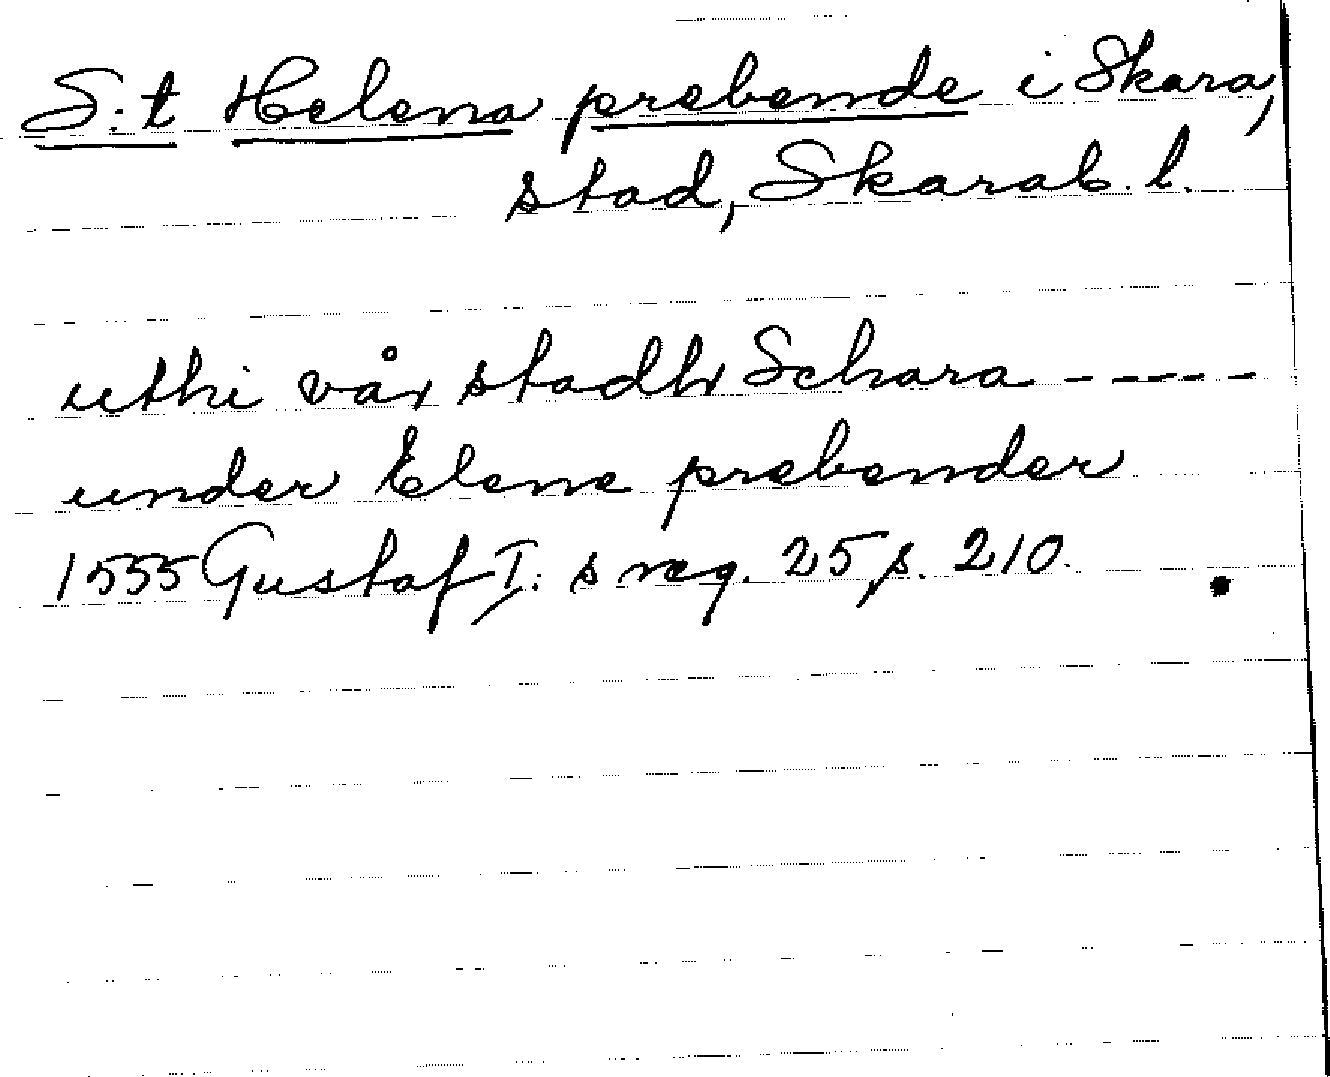 S:t Helena prebende i Skara,
stad, Skarab. l.
uthi vår stadh Schara -----
under Elene prebender
1555 Gustaf I. s reg. 25 s. 210.